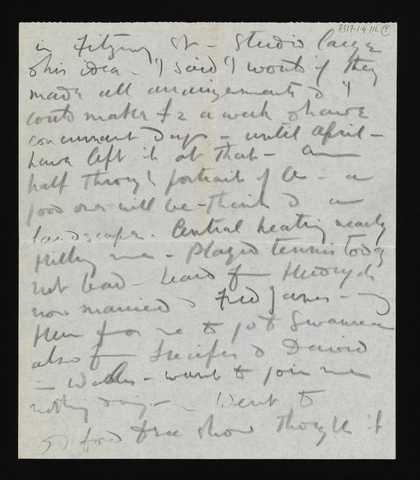 in Fitzroy St - Studio large
& his idea - I said I would if they
made all arrangements & I
could make £2 a week & have
concurrent days - until April -
have left it at that - am
half through portrait of
good one will be - think & am
landscape. Central heating nearly
killing me - Played tennis today
not bad - heard from
now married & Fred Janes -
from me to go to Swansea
also from & David
- Wales - want to join me
nothing doing - Went to
food free show though it